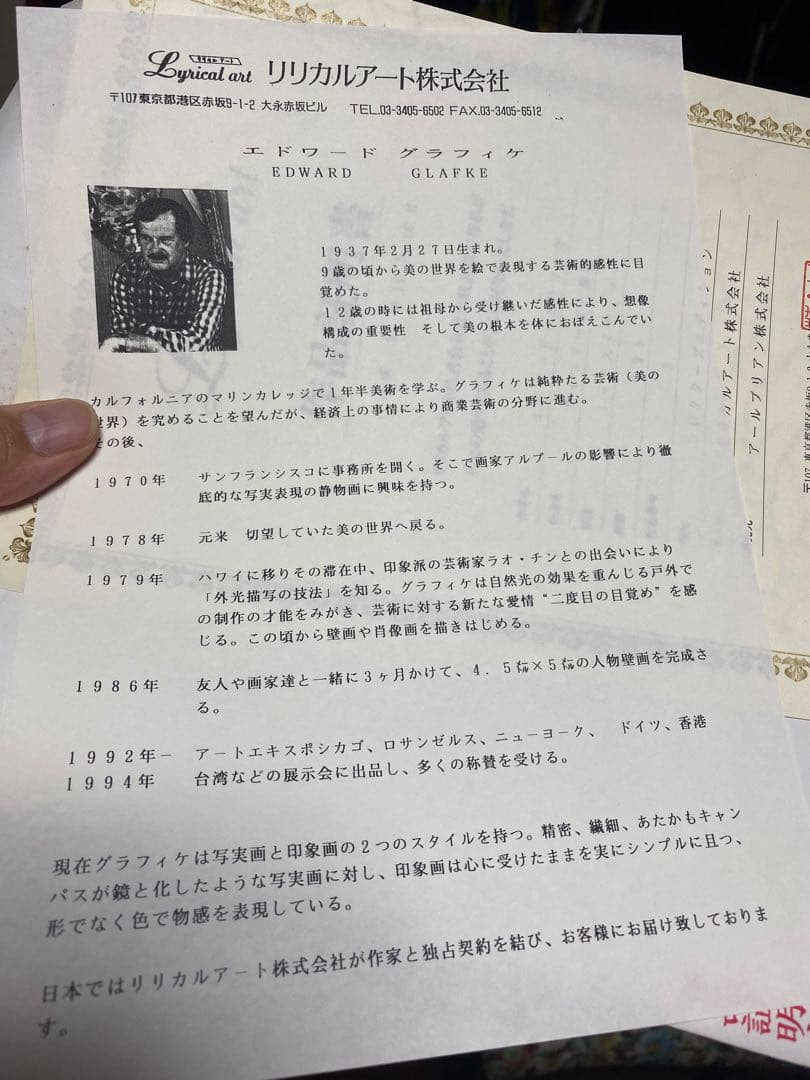 リリカルアート
Lyrical art リリカルアート株式会社
〒107東京都港区赤坂9-1-2 大永赤坂ビル TEL.03-3405-6502 FAX.03-3405-6512
エドワード グラフィケ
EDWARD GLAFKE
1937年2月27日生まれ。
9歳の頃から美の世界を絵で表現する芸術的感性に目
覚めた。
12歳の時には祖母から受け継いだ感性により、想像
構成の重要性 そして美の根本を体におぼえこんでい
た。
カルフォルニアのマリンカレッジで1年半美術を学ぶ。グラフィケは純粋たる芸術(美の
世界)を究めることを望んだが、経済上の事情により商業芸術の分野に進む。
その後、
1970年 サンフランシスコに事務所を開く。そこで画家アルブールの影響により徹
底的な写実表現の静物画に興味を持つ。
1978年 元来 切望していた美の世界へ戻る。
1979年 ハワイに移りその滞在中、印象派の芸術家ラオ・チンとの出会いにより
「外光描写の技法」を知る。グラフィケは自然光の効果を重んじる戸外で
の制作の才能をみがき、芸術に対する新たな愛情“二度目の目覚め”を感
じる。この頃から壁画や肖像画を描きはじめる。
1986年 友人や画家達と一緒に3ヶ月かけて、4.5㌔×5㌔の人物壁画を完成さ
る。
1992年− アートエキスポシカゴ、ロサンゼルス、ニューヨーク、 ドイツ、香港
1994年 台湾などの展示会に出品し、多くの称賛を受ける。
現在グラフィケは写実画と印象画の2つのスタイルを持つ。精密、繊細、あたかもキャン
バスが鏡と化したような写実画に対し、印象画は心に受けたままを実にシンプルに且つ、
形でなく色で物感を表現している。
日本ではリリカルアート株式会社が作家と独占契約を結び、お客様にお届け致しておりま
す。
ション
カルアート株式会社
アールブリアン株式会社
〒107 東京都港区赤坂
証明